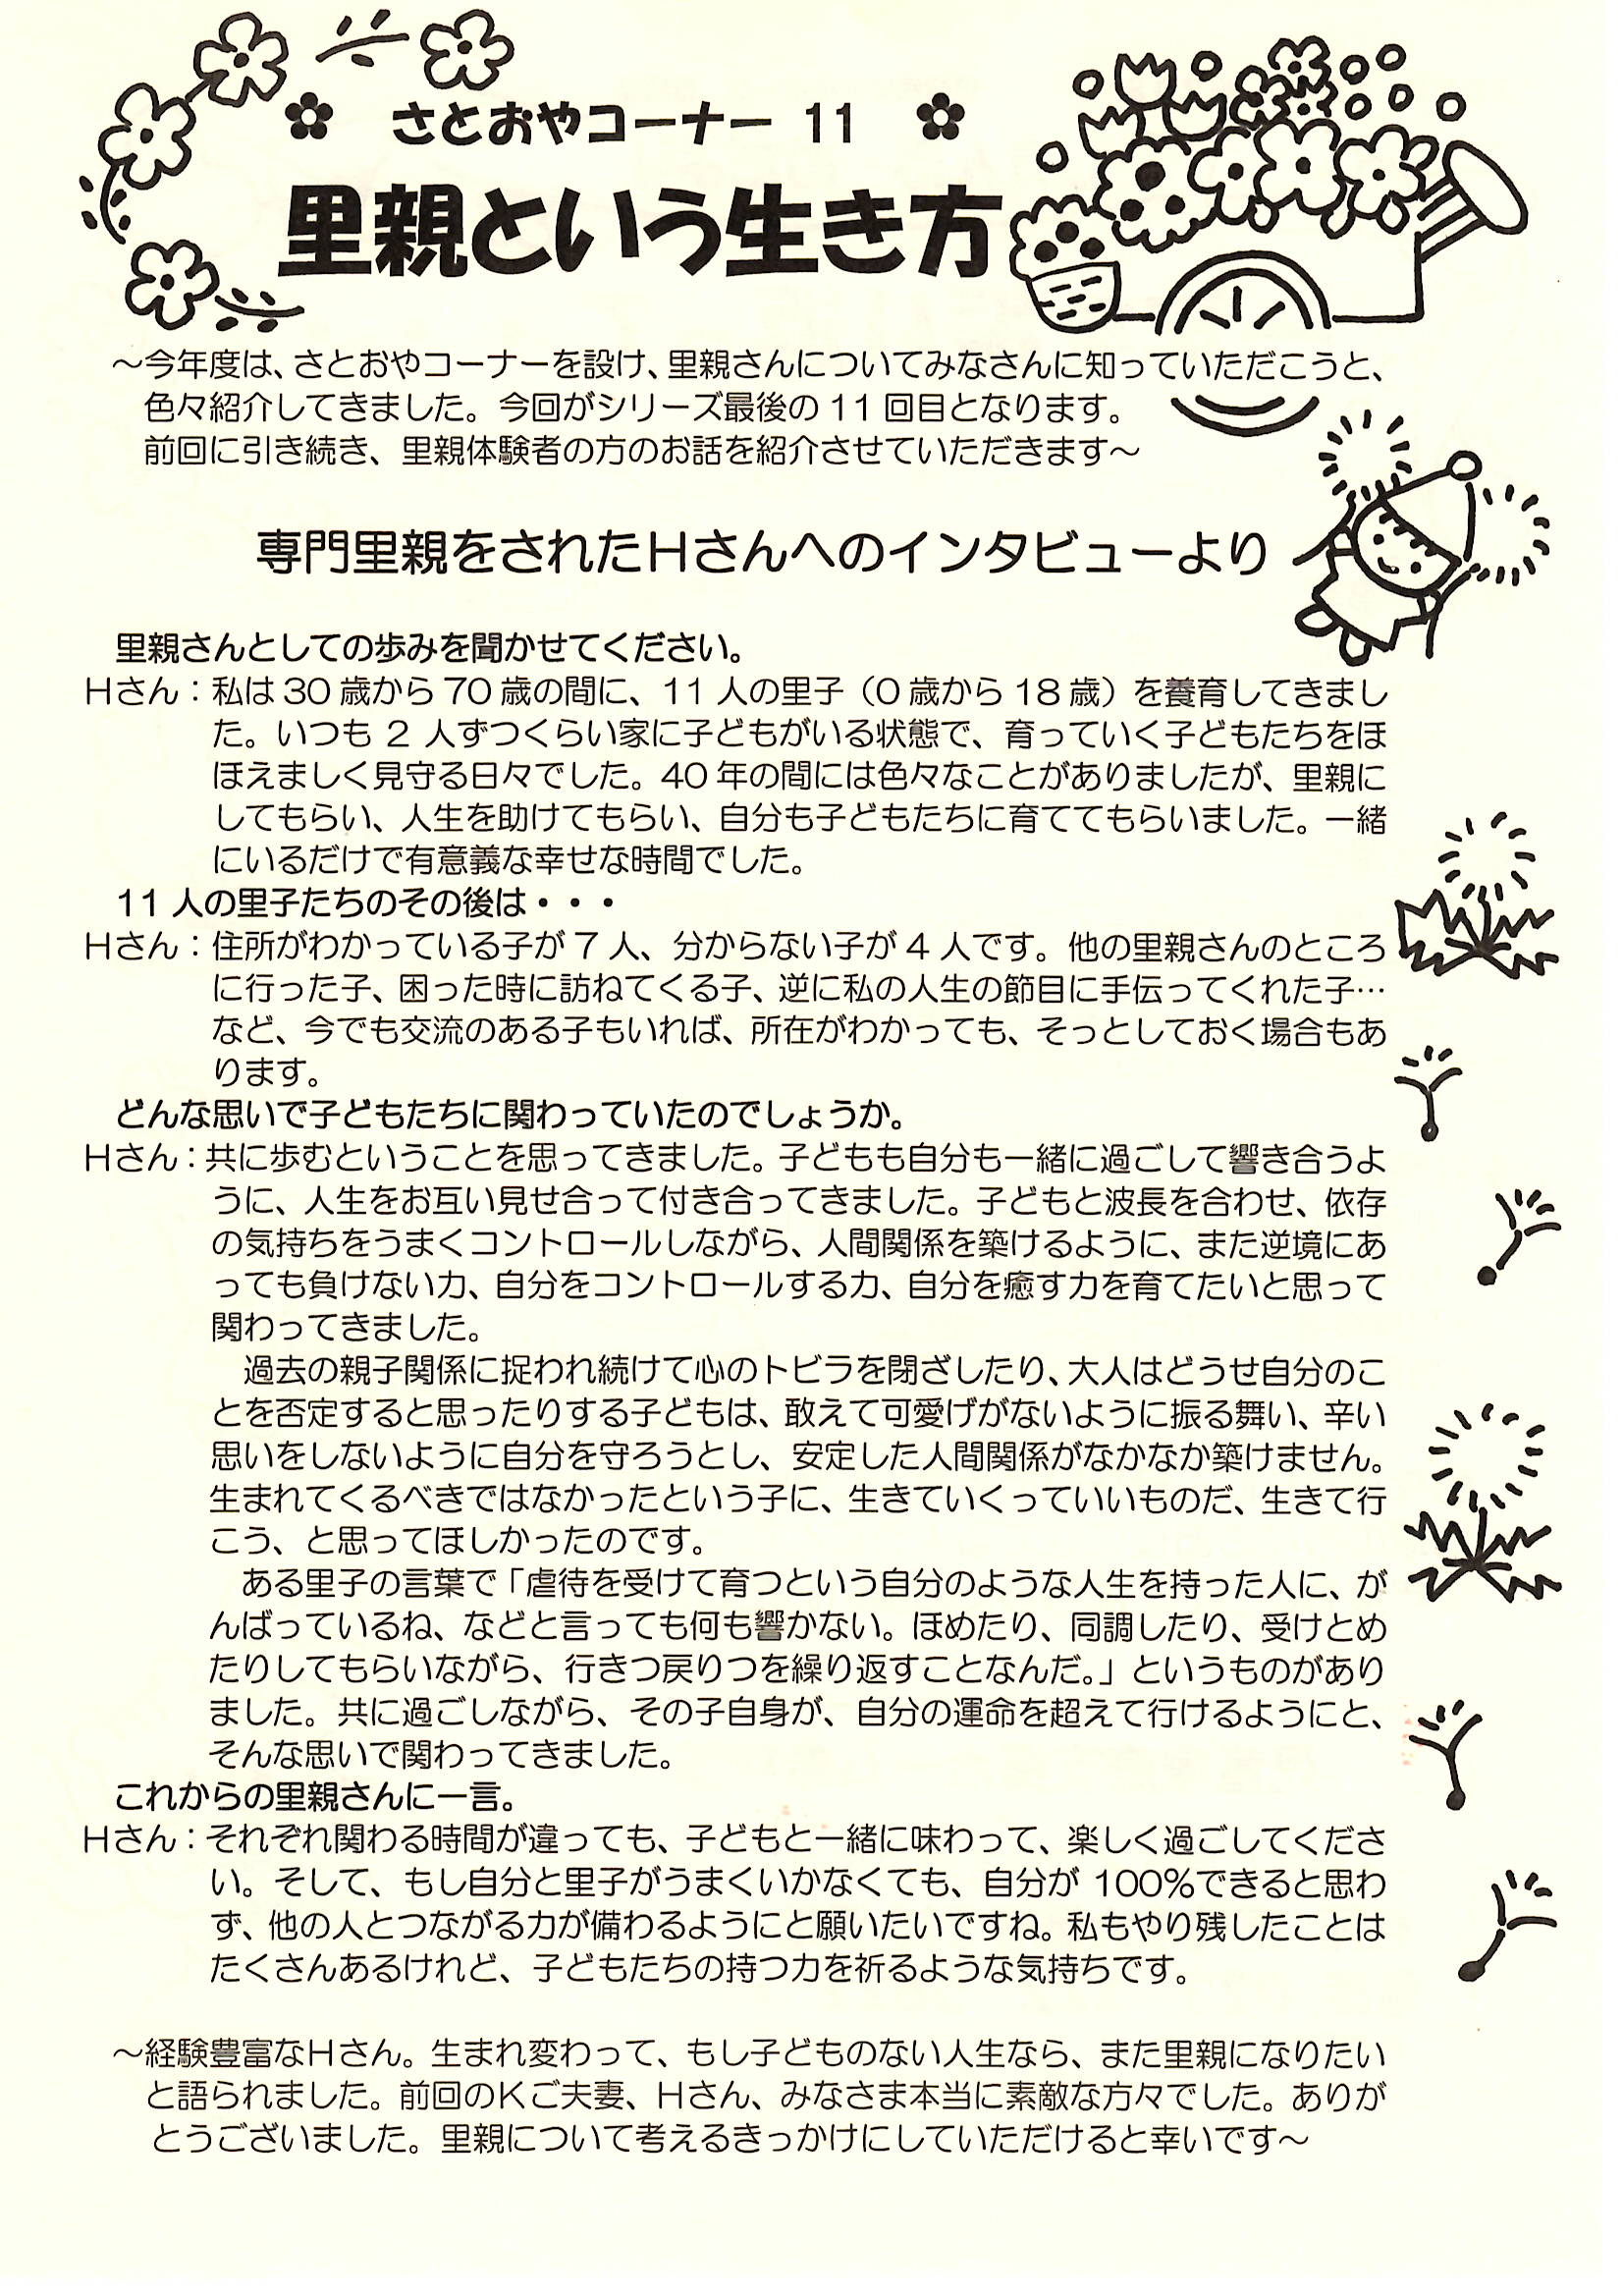 さとおやコーナー 11
里親という生き方
～今年度は、さとおやコーナーを設け、里親さんについてみなさんに知っていただこうと、
色々紹介してきました。今回がシリーズ最後の 11 回目となります。
前回に引き続き、里親体験者の方のお話を紹介させていただきます～
専門里親をされたHさんへのインタビューより
里親さんとしての歩みを聞かせてください。
Hさん：私は 30 歳から 70 歳の間に、11 人の里子（0 歳から 18 歳）を養育してきまし
た。いつも 2 人ずつくらい家に子どもがいる状態で、育っていく子どもたちをほ
ほえましく見守る日々でした。40 年の間には色々なことがありましたが、里親に
してもらい、人生を助けてもらい、自分も子どもたちに育ててもらいました。一緒
にいるだけで有意義な幸せな時間でした。
11 人の里子たちのその後は・・・
Hさん：住所がわかっている子が 7 人、分からない子が 4 人です。他の里親さんのところ
に行った子、困った時に訪ねてくる子、逆に私の人生の節目に手伝ってくれた子…
など、今でも交流のある子もいれば、所在がわかっても、そっとしておく場合もあ
ります。
どんな思いで子どもたちに関わっていたのでしょうか。
Hさん：共に歩むということを思ってきました。子どもも自分も一緒に過ごして響き合うよ
うに、人生をお互い見せ合って付き合ってきました。子どもと波長を合わせ、依存
の気持ちをうまくコントロールしながら、人間関係を築けるように、また逆境にあ
っても負けない力、自分をコントロールする力、自分を癒す力を育てたいと思って
関わってきました。
過去の親子関係に捉われ続けて心のトビラを閉ざしたり、大人はどうせ自分のこ
とを否定すると思ったりする子どもは、敢えて可愛げがないように振る舞い、辛い
思いをしないように自分を守ろうとし、安定した人間関係がなかなか築けません。
生まれてくるべきではなかったという子に、生きていくっていいものだ、生きて行
こう、と思ってほしかったのです。
ある里子の言葉で「虐待を受けて育つという自分のような人生を持った人に、が
んばっているね、などと言っても何も響かない。ほめたり、同調したり、受けとめ
たりしてもらいながら、行きつ戻りつを繰り返すことなんだ。」というものがあり
ました。共に過ごしながら、その子自身が、自分の運命を超えて行けるようにと、
そんな思いで関わってきました。
これからの里親さんに一言。
Hさん：それぞれ関わる時間が違っても、子どもと一緒に味わって、楽しく過ごしてくださ
い。そして、もし自分と里子がうまくいかなくても、自分が 100%できると思わ
ず、他の人とつながる力が備わるようにと願いたいですね。私もやり残したことは
たくさんあるけれど、子どもたちの持つ力を祈るような気持ちです。
～経験豊富なHさん。生まれ変わって、もし子どものない人生なら、また里親になりたい
と語られました。前回のKご夫妻、Hさん、みなさま本当に素敵な方々でした。ありが
とうございました。里親について考えるきっかけにしていただけると幸いです～